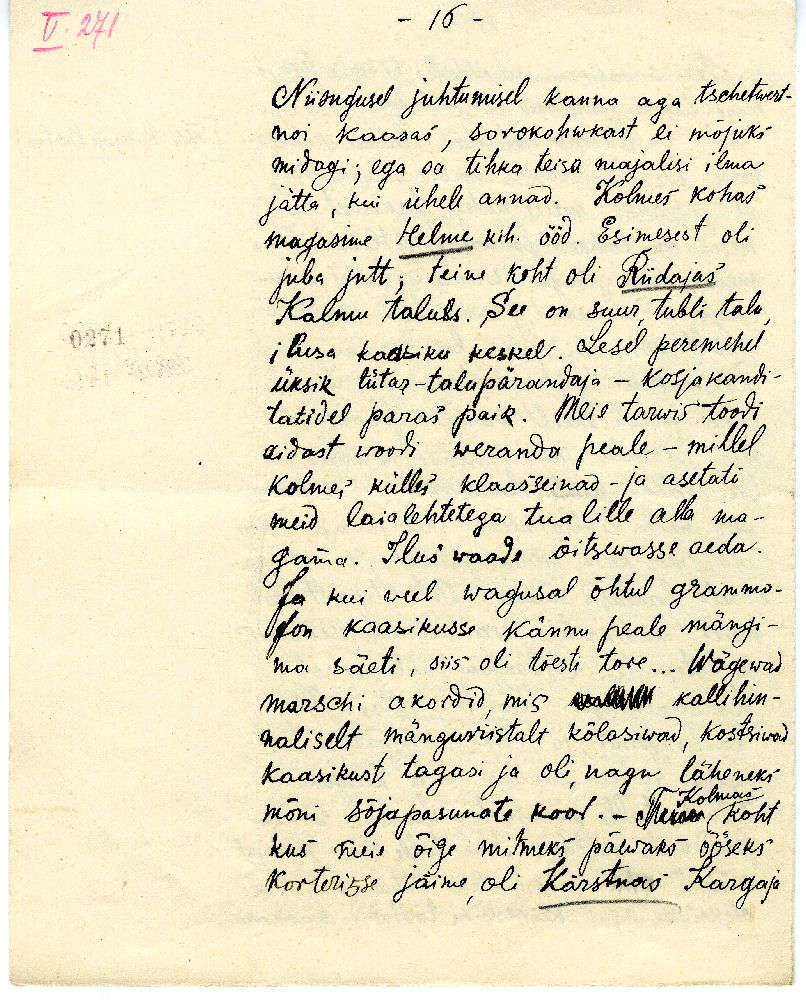 V. 271
- 16 -
Niisugusel juhtumisel kanna aga tschetwert-
noi kaasas, sorokohwkast ei mõjuks
midagi; ega sa tihka teisa majalisi ilma
jätta, kui ühele annad. Kolmes kohas
magasime Helme kih. ööd. Esimesest oli
juba jutt; teine koht oli Riidajas
Kalmu talus. See on suur, tubli talu,
ilusa kaasiku keskel. Lesel peremehel
üksik tütar-talupärandaja - kosjakandi-
tatidel paras paik. Meie tarwis toodi
aidast woodi weranda peale - millel
kolmes külles klaasseinad - ja asetati
meid laialehtetega tualille alla ma-
gama. Ilus waade õitsewasse aeda.
Ja kui veel wagusal õhtul grammo-
fon kaasikusse kännu peale mängi-
ma säeti, siis oli tõesti tore... Wägewad
marschi akordid, mis kallihin-
naliselt mänguriistalt kõlasiwad, kostsiwad
kaasikust tagasi ja oli, nagu läheneks
mõni sõjapasunate koor. - Kolmas koht
kus meie õige mitmeks päewaks ööseks
korterisse jäime, oli Kärstnas Kargaja
0271